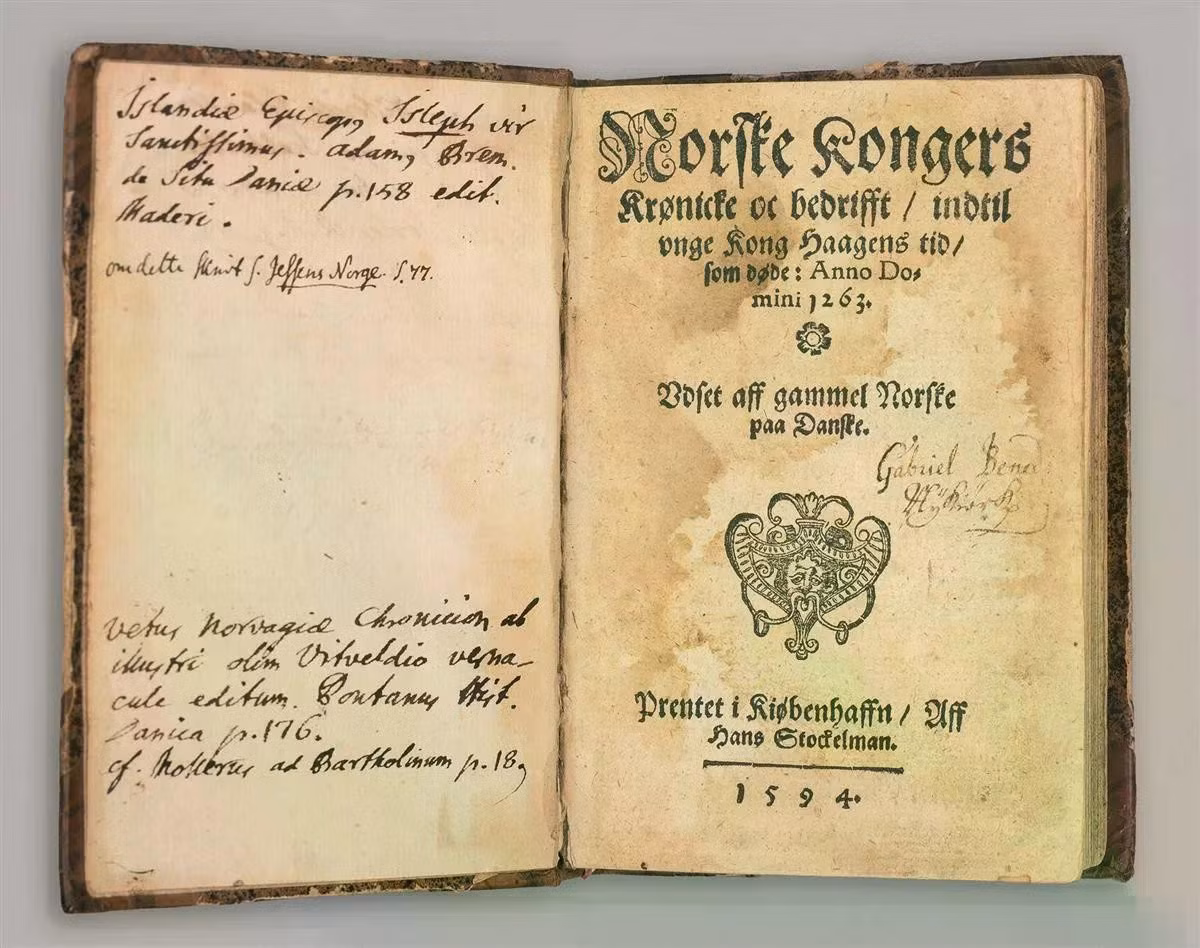 Islandiæ Episcopus Isleph vir
Sanctissimus. Adamus Brem.
de Situ Daniæ p. 158 edit.
Maderi.
om dette skrivt s. Jessens Norge. S. 77.
vetus Norvagiæ Chronicion ab
illustri olim Vitveldio verna-
cule editum. Pontanus Hist.
Danica p. 176.
cf. Mollerus ad Bartholinum p. 18
Norske Kongers
Krønicke oc bedrifft / indtil
vnge Kong Haagens tid /
som døde: Anno Do-
mini 1263.
Vdset aff gammel Norske
paa Danske.
Gabriel
Prentet i Kiøbenhaffn / Aff
Hans Stockelman.
1594.